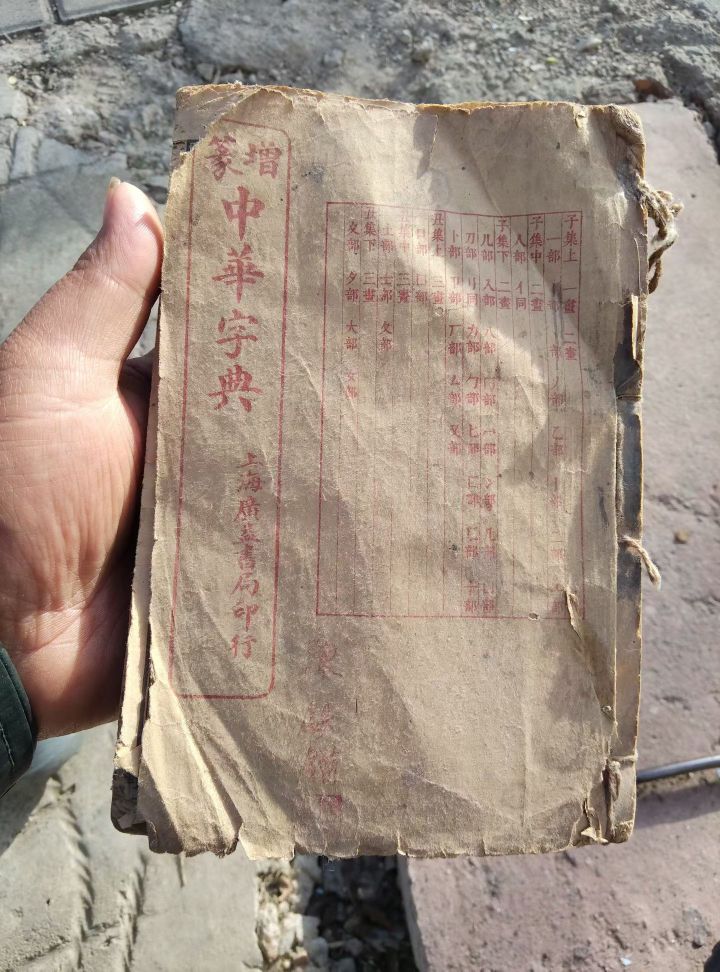 子集上 一畫 二畫
一部 丨部 丿部 乙部 亅部 二部
子集中 二畫
人部 亻同
子集下 二畫
儿部 入部 八部 冂部 冖部 冫部 几部 凵部
刀部 刂同 力部 勹部 匕部 匚部 匸部 十部
卜部 卩部 厂部 厶部 又部
丑集上 三畫
口部 囗部
丑集中 三畫
土部 士部 夂部
丑集下 三畫
夊部 夕部 大部 女部
增篆
中華字典
上海廣益書局印行